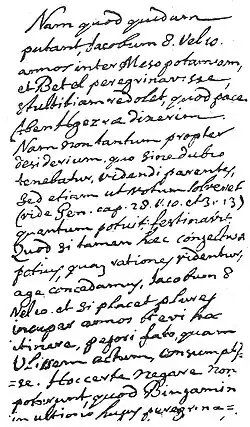 Nam quod quidam
putant, Jacobum 8. vel 10.
annos inter Mesopotamiam,
et Betel peregrinavisse,
stultitiam redolet, quod pace
Aben Hgezræ dixerim.
Nam non tantum propter
desiderium, quo sine dubio
tenebatur, videndi parentes,
sed etiam ut votum solveret
(vide Gen. cap. 28. v. 10. et 31. 13)
quantum potuit festinavit.
Quod si tamen hæc conjecturæ
potius, quam rationes videntur,
age concedamus, Jacobum 8
vel 10. et si placet plures
insuper annos brevi hoc
itinere, pejori fato, quam
Ulissem actum, consumpsis=
=se. Hoc certe negare non
poterunt, quod Binjamin
in ultimo hujus peregrina=